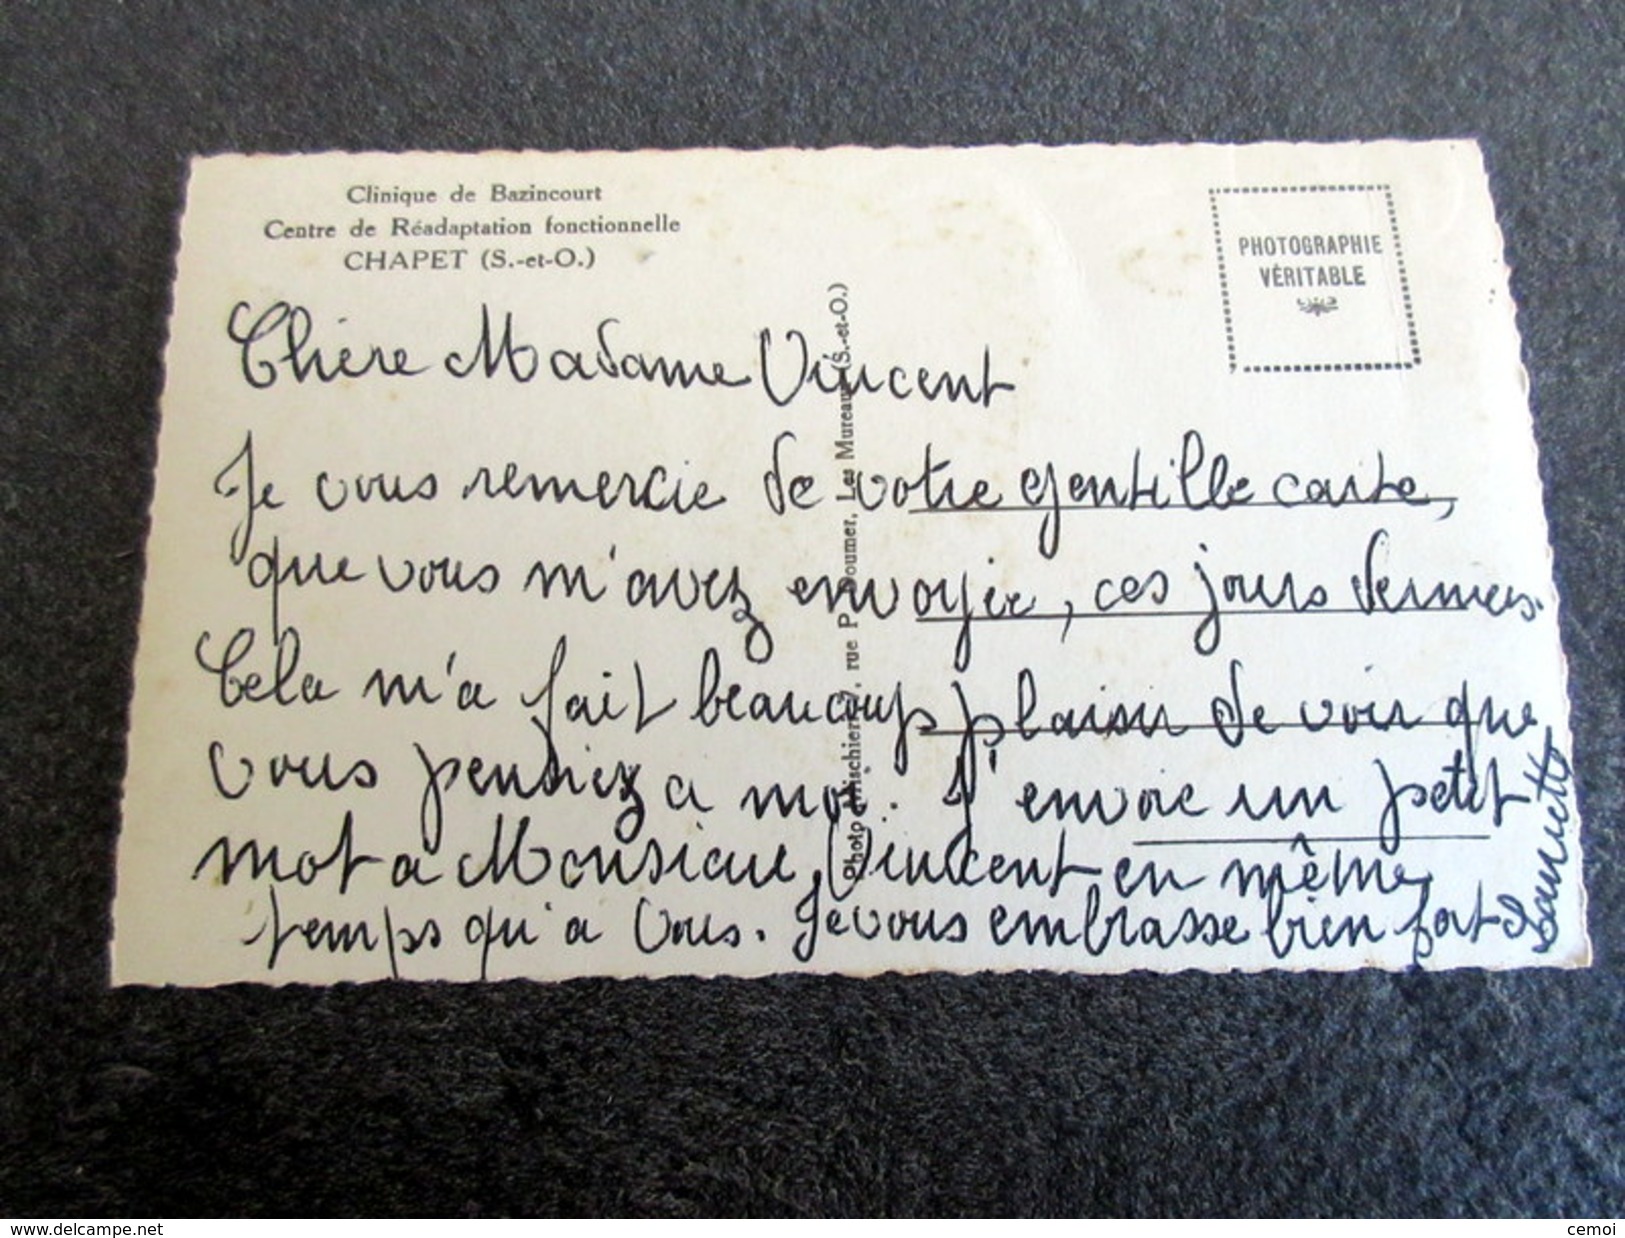 Clinique de Bazincourt
Centre de Réadaptation fonctionnelle
CHAPET (S.-et-O.)
PHOTOGRAPHIE
VÉRITABLE
Chère Madame Vincent
Je vous remercie de votre gentille carte,
que vous m'avez envoyée, ces jours derniers.
Cela m'a fait beaucoup plaisir de voir que
vous pensiez a moi. J'envoie un petit
mot a Monsieur Vincent en même
temps qu'a Vous. Je vous embrasse bien fort
rue P. Doumer, Les Mureaux (S.-et-O.)
www.delcampe.net
cemoi